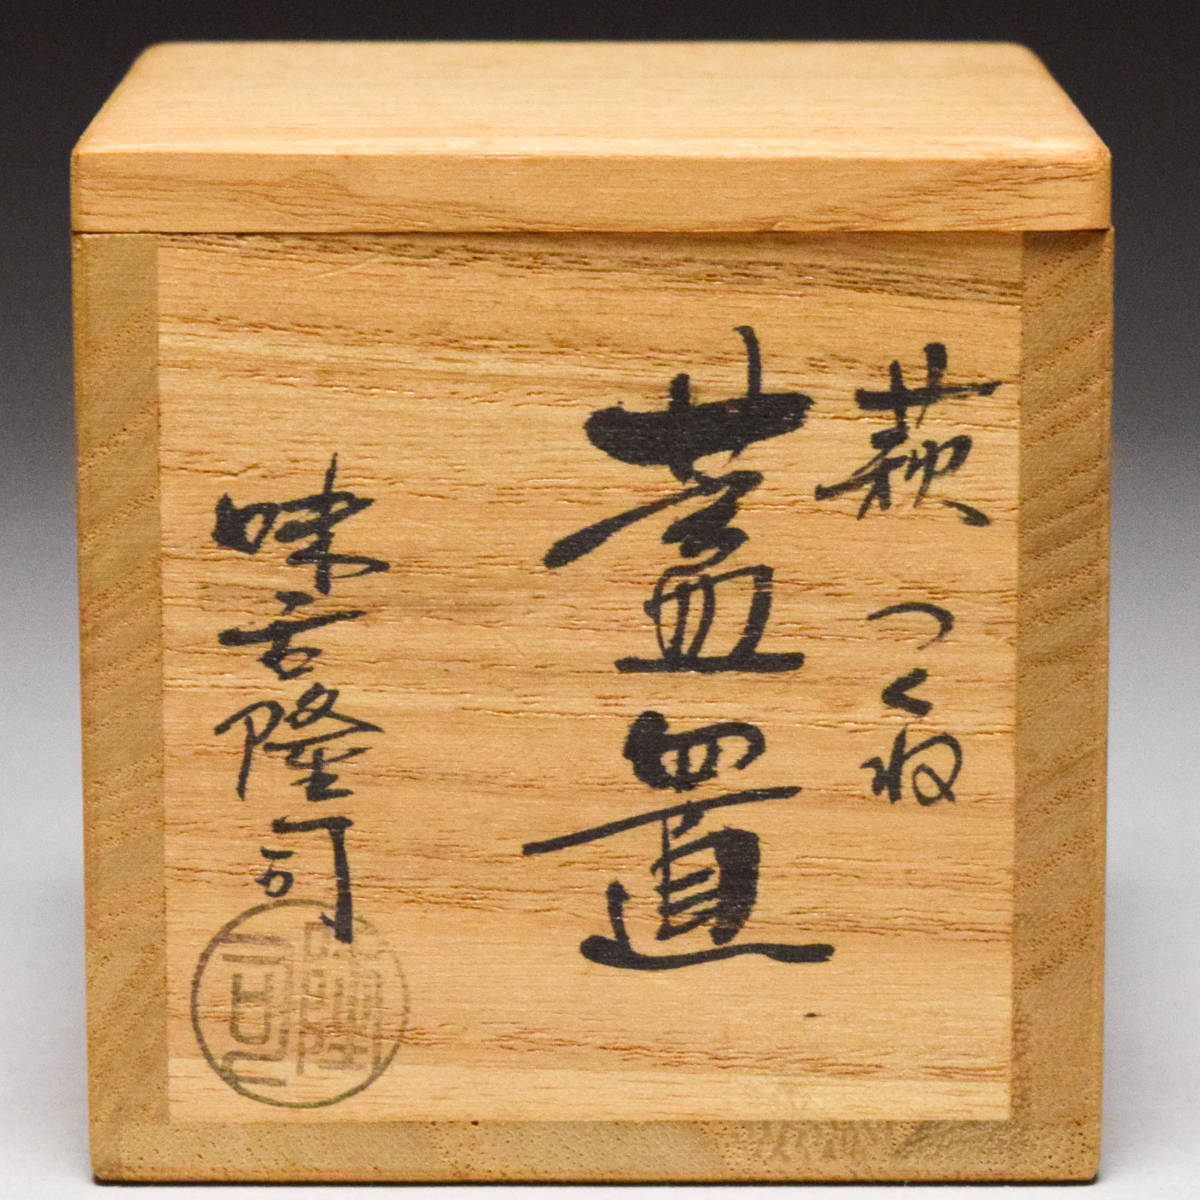 萩 つくね
蓋置
味舌隆司